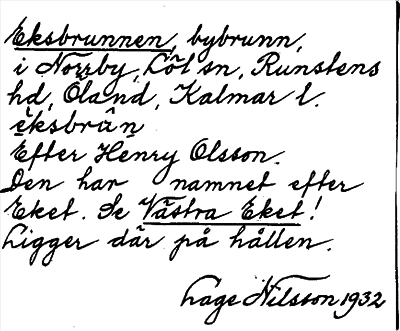 Eksbrunnen, bybrunn,
i Norrby, Löt sn, Runstens
hd, Öland, Kalmar l.
e̬ksbrân
Efter Henry Olsson.
Den har namnet efter
Eket. Se Västra Eket!
Ligger där på hällen.
Lage Nilsson 1932